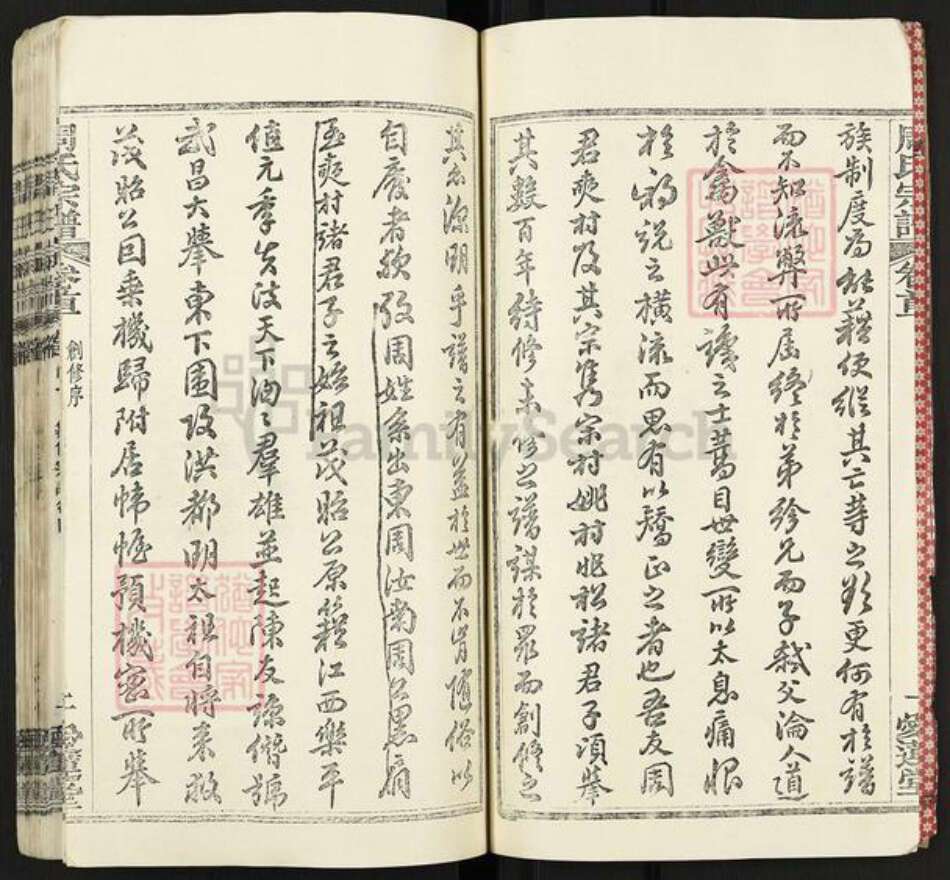 周氏宗譜
卷首
愛蓮堂
族制度為桎藉便縱其亡等之欲更何有於譜
而不知流弊所屆終於弟紾兄而子弒父淪人道
於禽獸此有識之士蒿目世變所以太息痛恨
於邪說之橫流而思有以矯正之者也吾友周
君爽村及其宗雋宗村姚村兆松諸君子頃舉
其數百年待修未修之譜謀於眾而創修之
其亦深明乎譜之有益於世而不肯隨俗以
自廢者歟攷周姓系出東周汝南周公黑肩
爽村諸君子之始祖茂昭公原籍江西樂平
值元季失政天下洶洶羣雄並起陳友諒僭號
武昌大舉東下圍攻洪都明太祖自將來救
茂昭公因乘機歸附居帷幄預機密所舉
周氏宗譜
卷首
創修序
二
FamilySearch